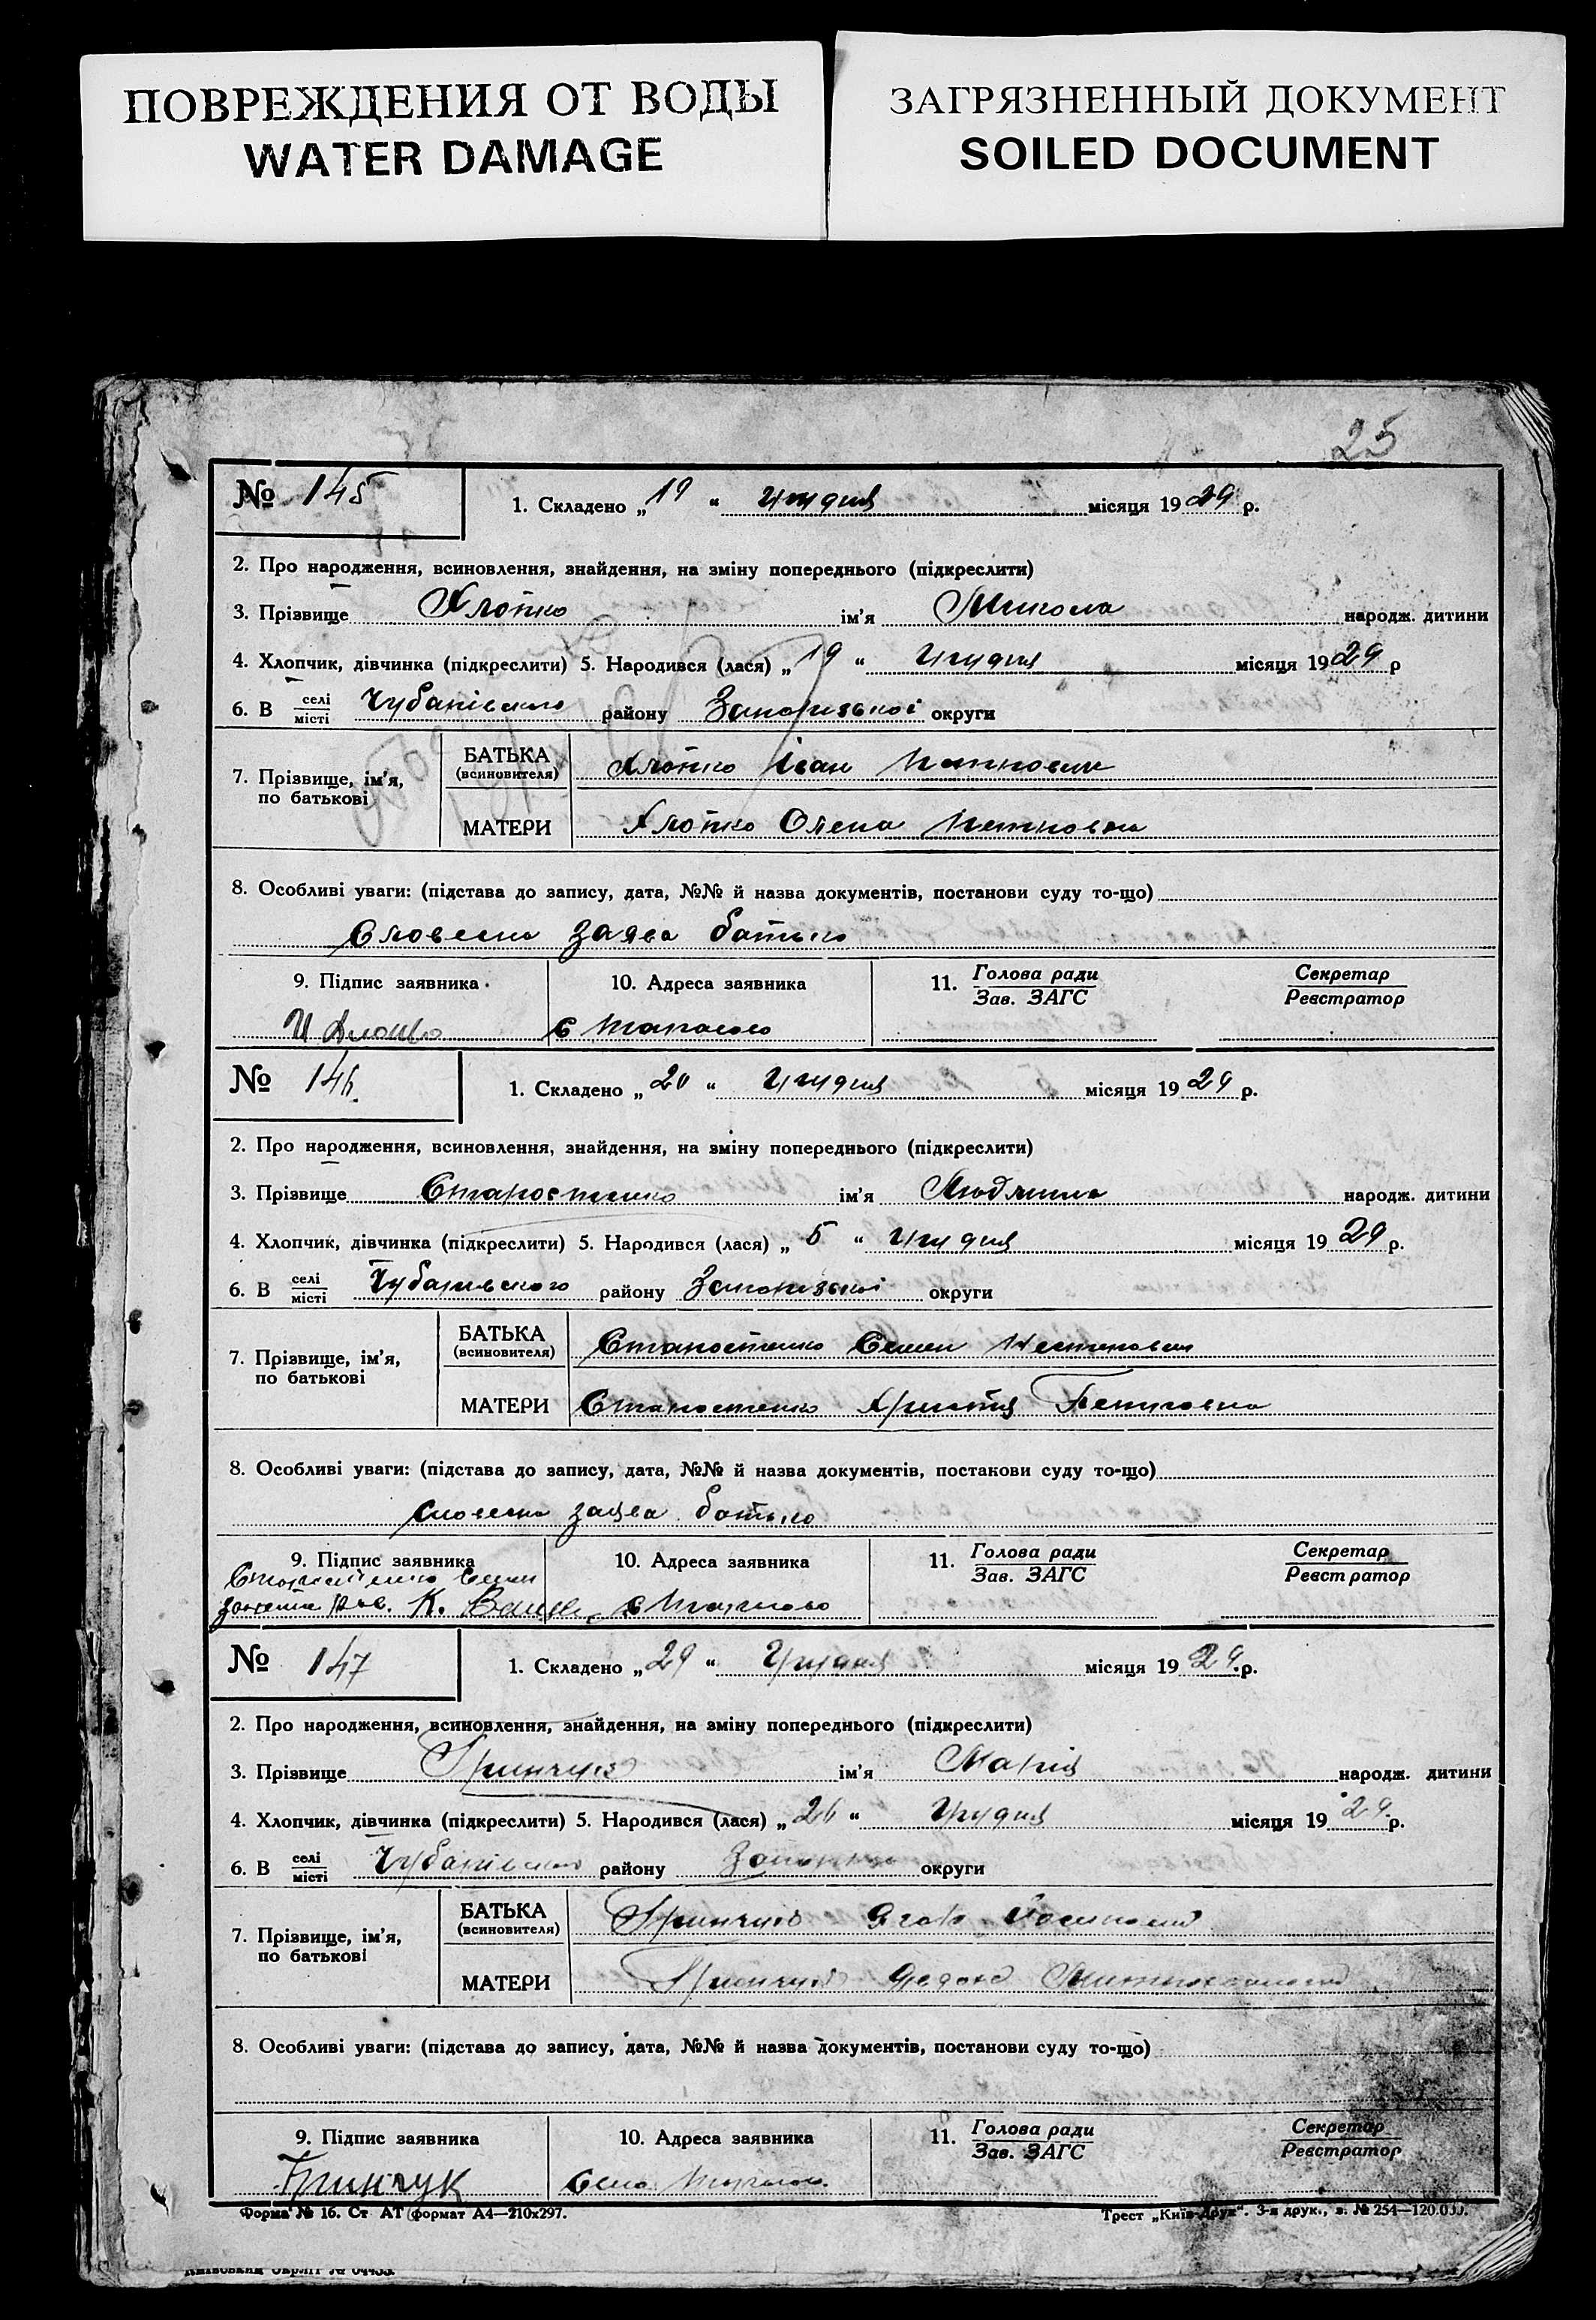 ПОВРЕЖДЕНИЯ ОТ ВОДЫ
WATER DAMAGE
ЗАГРЯЗНЕННЫЙ ДОКУМЕНТ
SOILED DOCUMENT
25
№ 145
1. Складено „19“ Грудня місяця 1929 р.
2. Про народження, всиновлення, знайдення, на зміну попереднього (підкреслити)
3. Прізвище Хлопко ім’я Микола народж. дитини
4. Хлопчик, дівчинка (підкреслити) 5. Народився (лася) „19“ Грудня місяця 1929 р
6. В селі місті Чубарівського району Запорізької округи
7. Прізвище, ім’я, по батькові
БАТЬКА (всиновителя) Хлопко Іван Петрович
МАТЕРИ Хлопко Олена Петровна
8. Особливі уваги: (підстава до запису, дата, №№ й назва документів, постанови суду то-що)
Словесна заява батька
9. Підпис заявника 10. Адреса заявника 11. Голова ради Зав. ЗАГС Секретар Реєстратор
с.
№ 146
1. Складено „20“ Грудня місяця 1929 р.
2. Про народження, всиновлення, знайдення, на зміну попереднього (підкреслити)
3. Прізвище Старостенко ім’я Людмила народж. дитини
4. Хлопчик, дівчинка (підкреслити) 5. Народився (лася) „5“ Грудня місяця 1929 р.
6. В селі місті Чубарівського району Запорізької округи
7. Прізвище, ім’я, по батькові
БАТЬКА (всиновителя) Старостенко Семен
МАТЕРИ Старостенко Христя Петровна
8. Особливі уваги: (підстава до запису, дата, №№ й назва документів, постанови суду то-що)
словесна заява батька
9. Підпис заявника 10. Адреса заявника 11. Голова ради Зав. ЗАГС Секретар Реєстратор
Старостенко Семен
К. с.
№ 147
1. Складено „29“ Грудня місяця 1929 р.
2. Про народження, всиновлення, знайдення, на зміну попереднього (підкреслити)
3. Прізвище Гринчук ім’я Марія народж. дитини
4. Хлопчик, дівчинка (підкреслити) 5. Народився (лася) „26“ Грудня місяця 1929 р.
6. В селі місті Чубарівського району округи
7. Прізвище, ім’я, по батькові
БАТЬКА (всиновителя) Гринчук
МАТЕРИ Гринчук
8. Особливі уваги: (підстава до запису, дата, №№ й назва документів, постанови суду то-що)
9. Підпис заявника 10. Адреса заявника 11. Голова ради Зав. ЗАГС Секретар Реєстратор
Гринчук Село
Форма № 16. Ст АТ формат А4—210х297.
Трест „Київ-Друк“. 3-я друк., з. № 254—120.000.